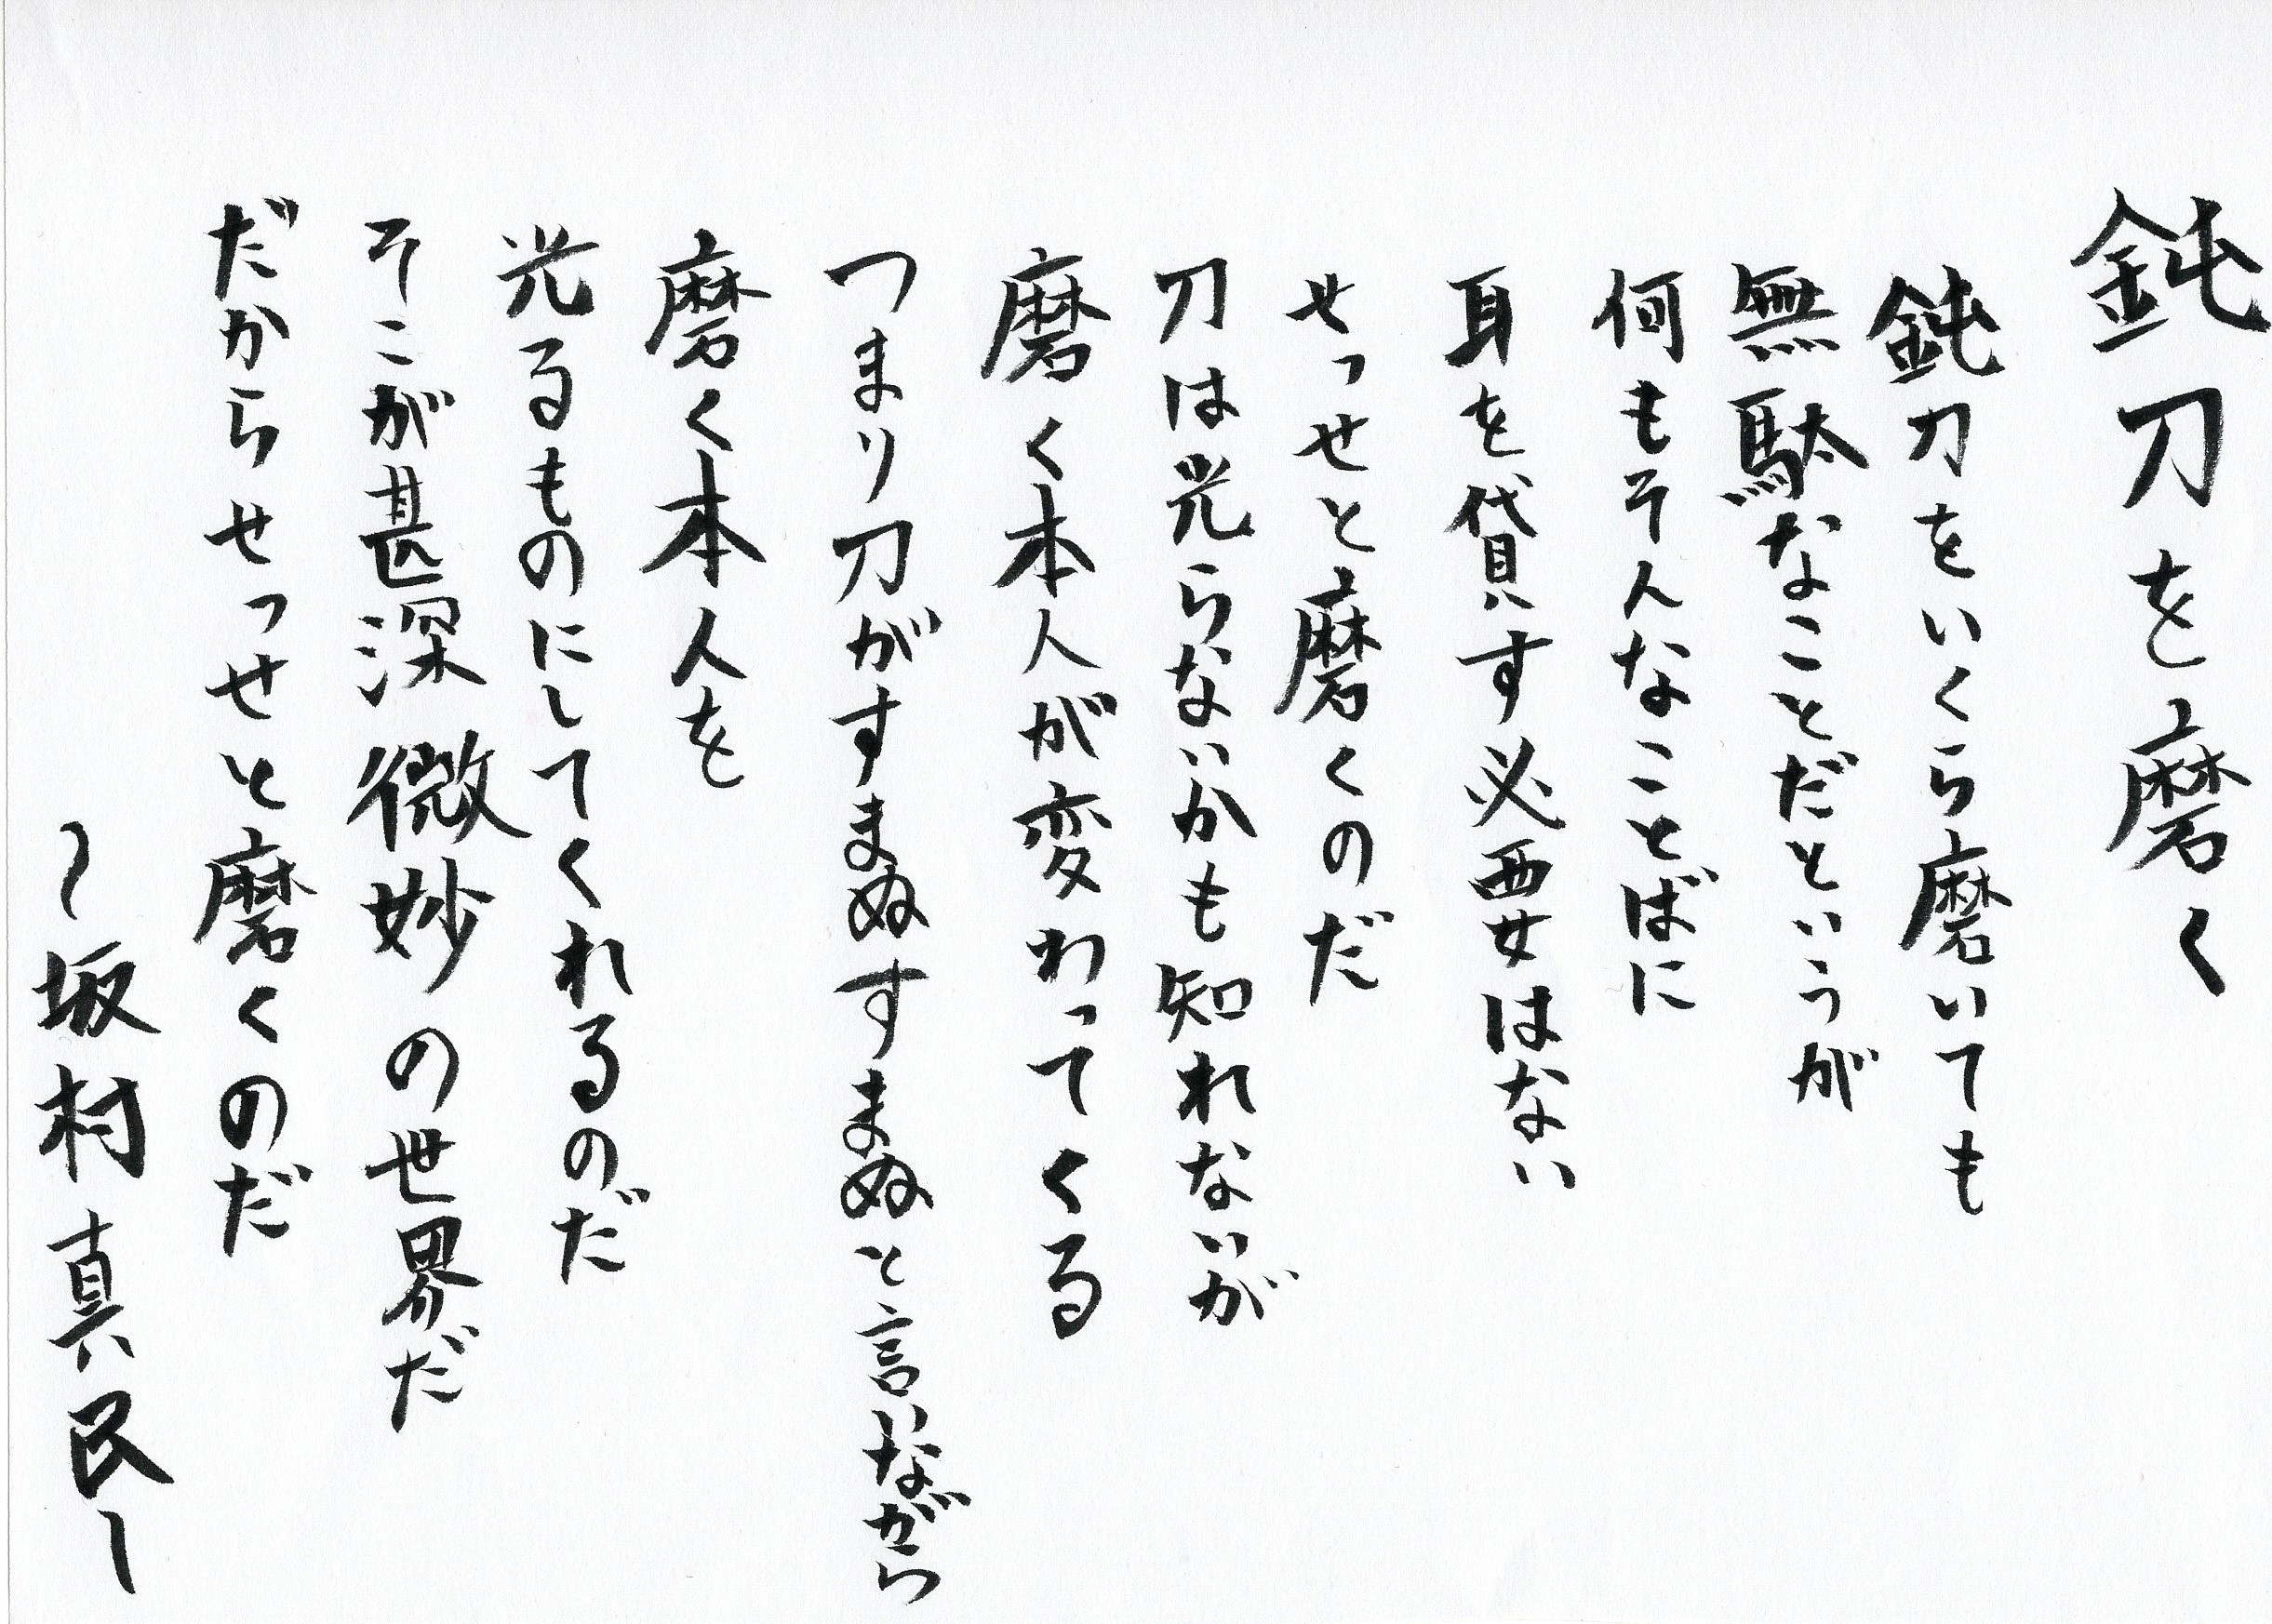 鈍刀を磨く
鈍刀をいくら磨いても
無駄なことだというが
何もそんなことばに
耳を貸す必要はない
せっせと磨くのだ
刀は光らないかも知れないが
磨く本人が変わってくる
つまり刀がすまぬすまぬと言いながら
磨く本人を
光るものにしてくれるのだ
そこが甚深微妙の世界だ
だからせっせと磨くのだ
~坂村真民~